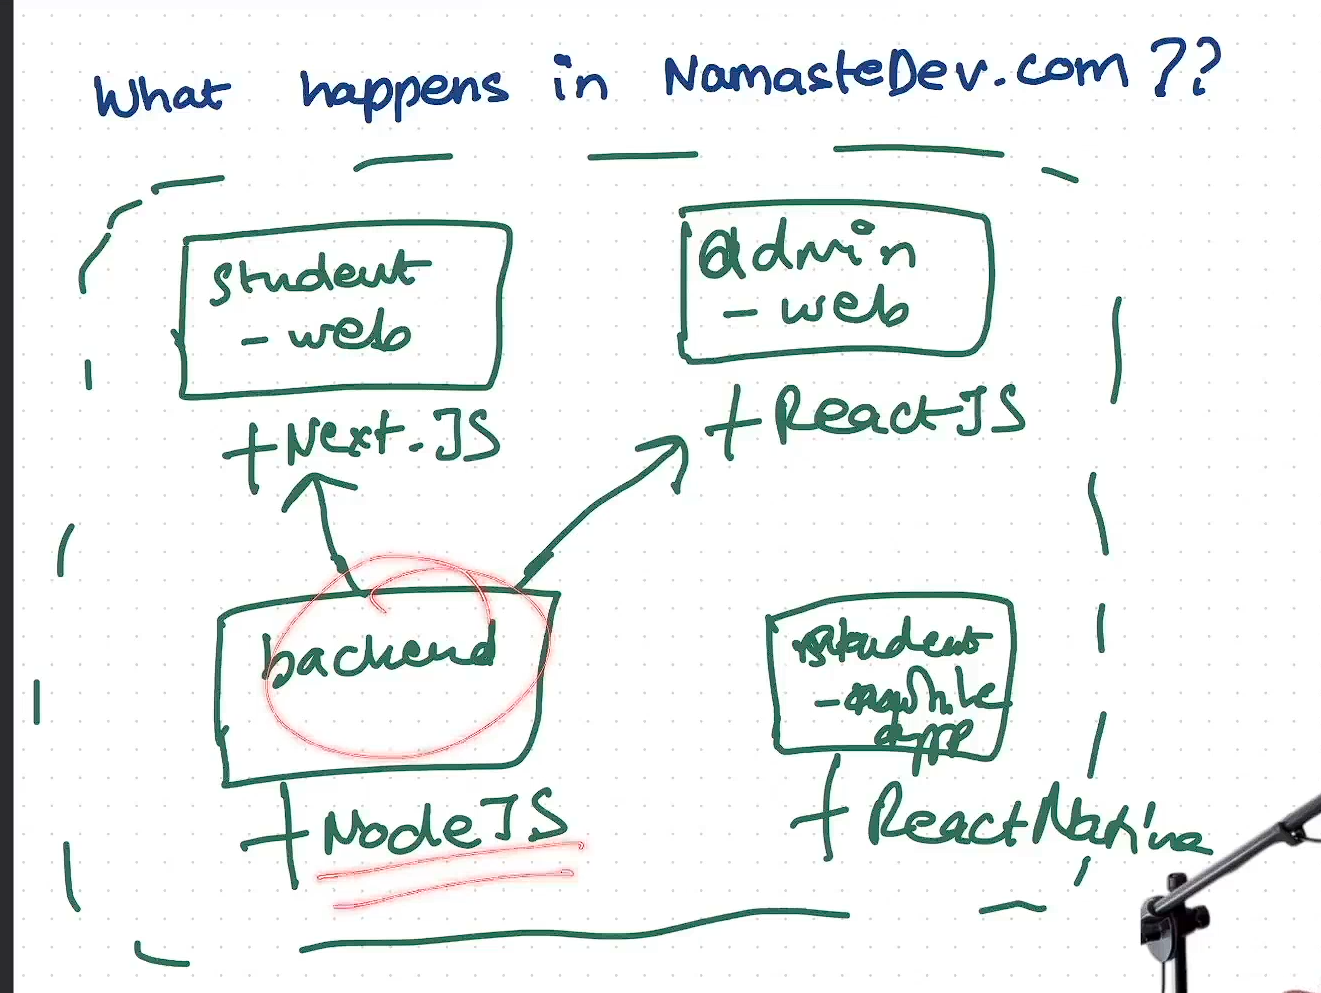 What happens in NamasteDev.com ??
student
- web
+ Next.JS
admin
- web
+ ReactJS
backend
+ NodeJS
student
- mobile
app
+ React Native